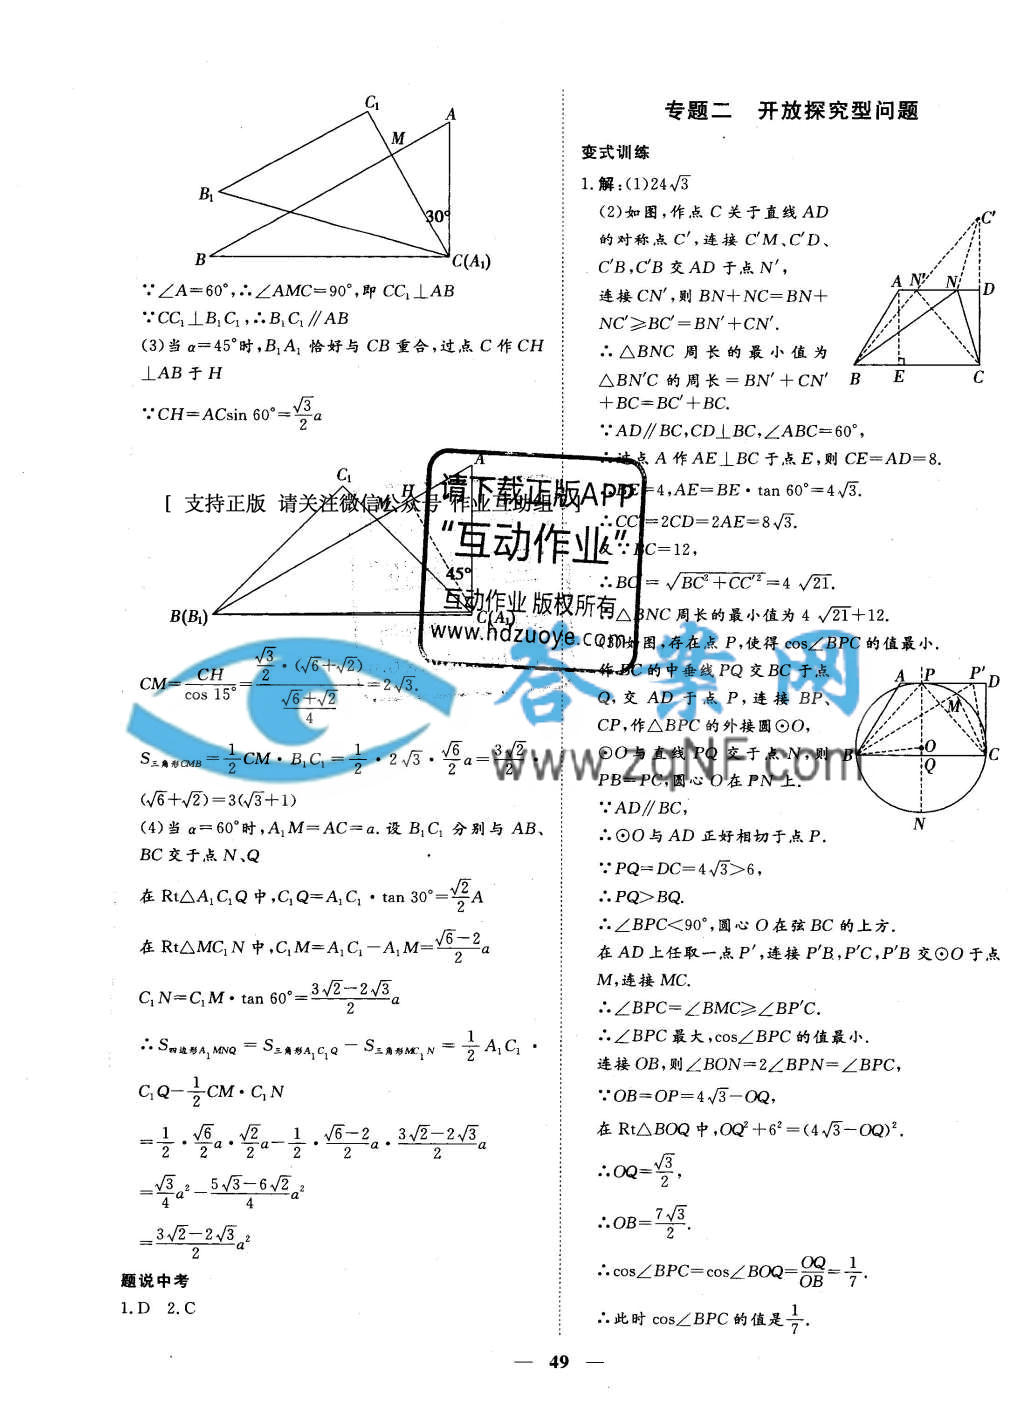 C₁
A
M
B₁
30°
B
C(A₁)
∵∠A=60°,∴∠AMC=90°,即 CC₁⊥AB
∵CC₁⊥B₁C₁,∴B₁C₁∥AB
(3)当 α=45°时,B₁A₁ 恰好与 CB 重合,过点 C 作 CH
⊥AB 于 H
∵CH=ACsin 60°=√3/2 a
C₁
M
H
A
45°
B(B₁)
C(A₁)
[ 支持正版 请关注微信公众号 作业互助组 ]
请下载正版APP
“互动作业”
互动作业 版权所有
www.hdzuoye.com
CM=CH/cos 15°=(√3/2·(√6+√2))/((√6+√2)/4)=2√3.
S三角形CMB=1/2 CM·B₁C₁=1/2·2√3·√6/2 a=3√2/2·
(√6+√2)=3(√3+1)
(4)当 α=60°时,A₁M=AC=a. 设 B₁C₁ 分别与 AB、
BC 交于点 N、Q
在 Rt△A₁C₁Q 中,C₁Q=A₁C₁·tan 30°=√2/2 A
在 Rt△MC₁N 中,C₁M=A₁C₁-A₁M=(√6-2)/2 a
C₁N=C₁M·tan 60°=(3√2-2√3)/2 a
∴S四边形A₁MNQ=S三角形A₁C₁Q-S三角形MC₁N=1/2 A₁C₁·
C₁Q-1/2 CM·C₁N
=1/2·√6/2 a·√2/2 a-1/2·(√6-2)/2 a·(3√2-2√3)/2 a
=√3/4 a²-(5√3-6√2)/4 a²
=(3√2-2√3)/2 a²
题说中考
1.D 2.C
专题二 开放探究型问题
变式训练
1.解:(1)24√3
(2)如图,作点 C 关于直线 AD
的对称点 C′,连接 C′M、C′D、
C′B,C′B 交 AD 于点 N′,
连接 CN′,则 BN+NC=BN+
NC′≥BC′=BN′+CN′.
∴△BNC 周长的最小值为
△BN′C 的周长=BN′+CN′
+BC=BC′+BC.
C′
A
N′
N
D
B
E
C
∵AD∥BC,CD⊥BC,∠ABC=60°,
∴过点 A 作 AE⊥BC 于点 E,则 CE=AD=8.
∴BE=4,AE=BE·tan 60°=4√3.
∴CC′=2CD=2AE=8√3.
又∵BC=12,
∴BC′=√(BC²+CC′²)=4√21.
∴△BNC 周长的最小值为 4√21+12.
(3)如图,存在点 P,使得 cos∠BPC 的值最小.
作 BC 的中垂线 PQ 交 BC 于点
Q,交 AD 于点 P,连接 BP、
CP,作△BPC 的外接圆⊙O,
⊙O 与直线 PQ 交于点 N,则
PB=PC,圆心 O 在 PN 上.
A
P
P′
D
M
O
B
Q
C
N
∵AD∥BC,
∴⊙O 与 AD 正好相切于点 P.
∵PQ=DC=4√3>6,
∴PQ>BQ.
∴∠BPC<90°,圆心 O 在弦 BC 的上方.
在 AD 上任取一点 P′,连接 P′B,P′C,P′B 交⊙O 于点
M,连接 MC.
∴∠BPC=∠BMC≥∠BP′C.
∴∠BPC 最大,cos∠BPC 的值最小.
连接 OB,则∠BON=2∠BPN=∠BPC,
∵OB=OP=4√3-OQ,
在 Rt△BOQ 中,OQ²+6²=(4√3-OQ)².
∴OQ=√3/2,
∴OB=7√3/2.
∴cos∠BPC=cos∠BOQ=OQ/OB=1/7.
∴此时 cos∠BPC 的值是1/7.
答案网
www.zqNF.com
— 49 —